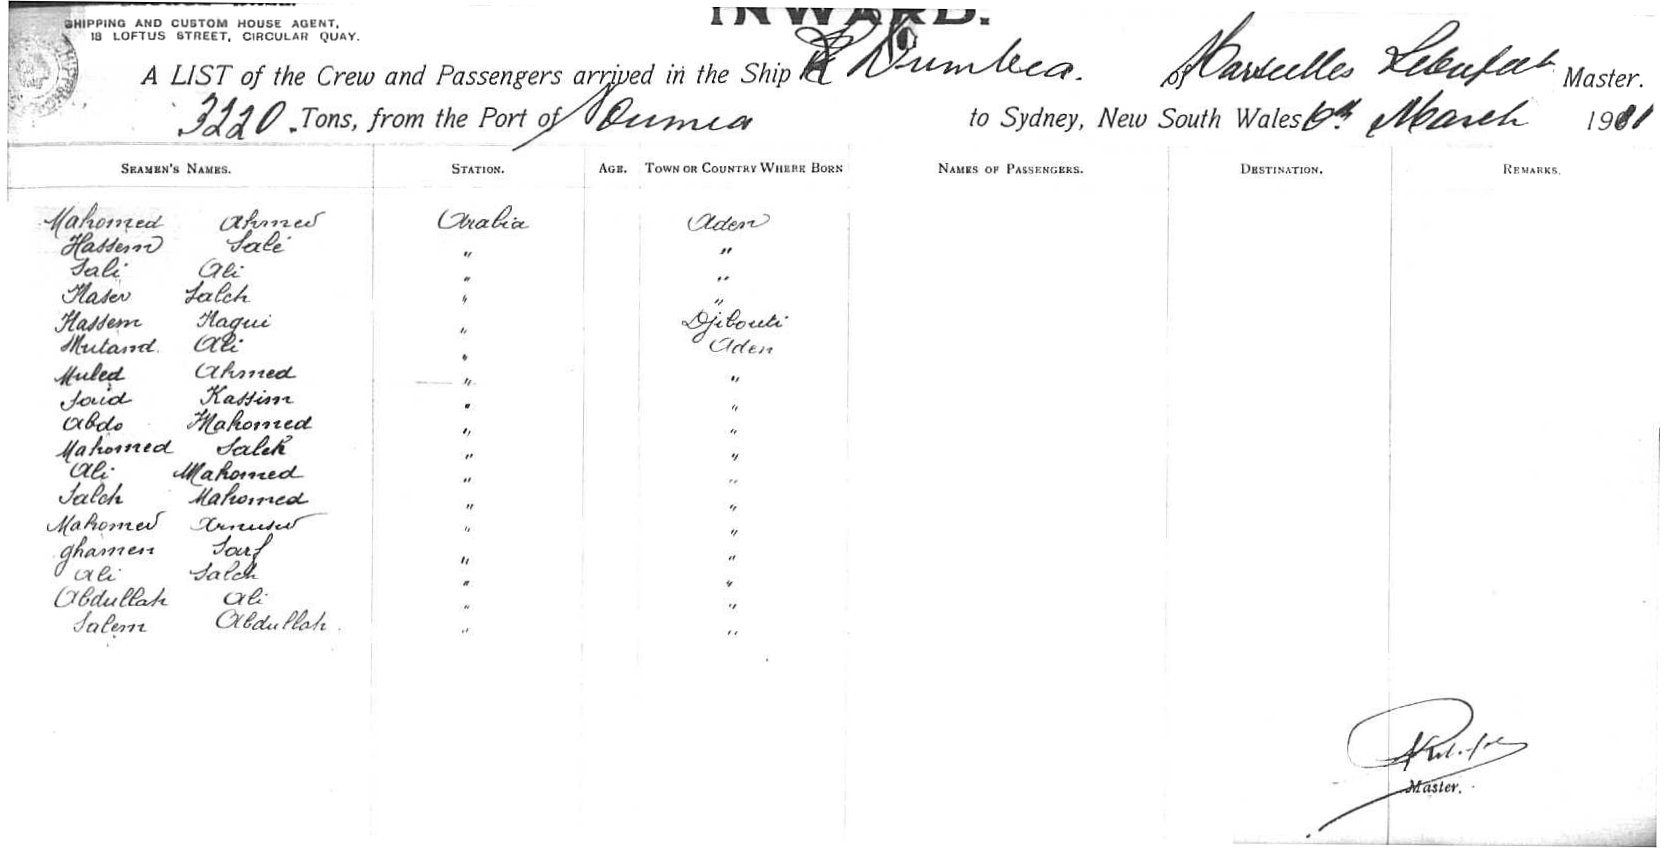 SHIPPING AND CUSTOM HOUSE AGENT,
18 LOFTUS STREET, CIRCULAR QUAY.
INWARD.
A LIST of the Crew and Passengers arrived in the Ship Dumbea. of Marseilles Master.
3220. Tons, from the Port of Noumea to Sydney, New South Wales 6th March 19
SEAMEN'S NAMES. STATION. AGE. TOWN OR COUNTRY WHERE BORN NAMES OF PASSENGERS. DESTINATION. REMARKS.
Mahomed Ahmed Arabia Aden
Hassem Sale " "
Sali Ali " "
Naser Saleh " "
Hassem Nagui " Djibouti
Mutand. Ali " Aden
Muled Ahmed " "
Said Kassim " "
Abdo Mahomed " "
Mahomed Saleh " "
Ali Mahomed " "
Saleh Mahomed " "
Mahomed " "
ghamen Sarf " "
Ali Saleh " "
Abdullah Ali " "
Salem Abdullah. " "
Master.